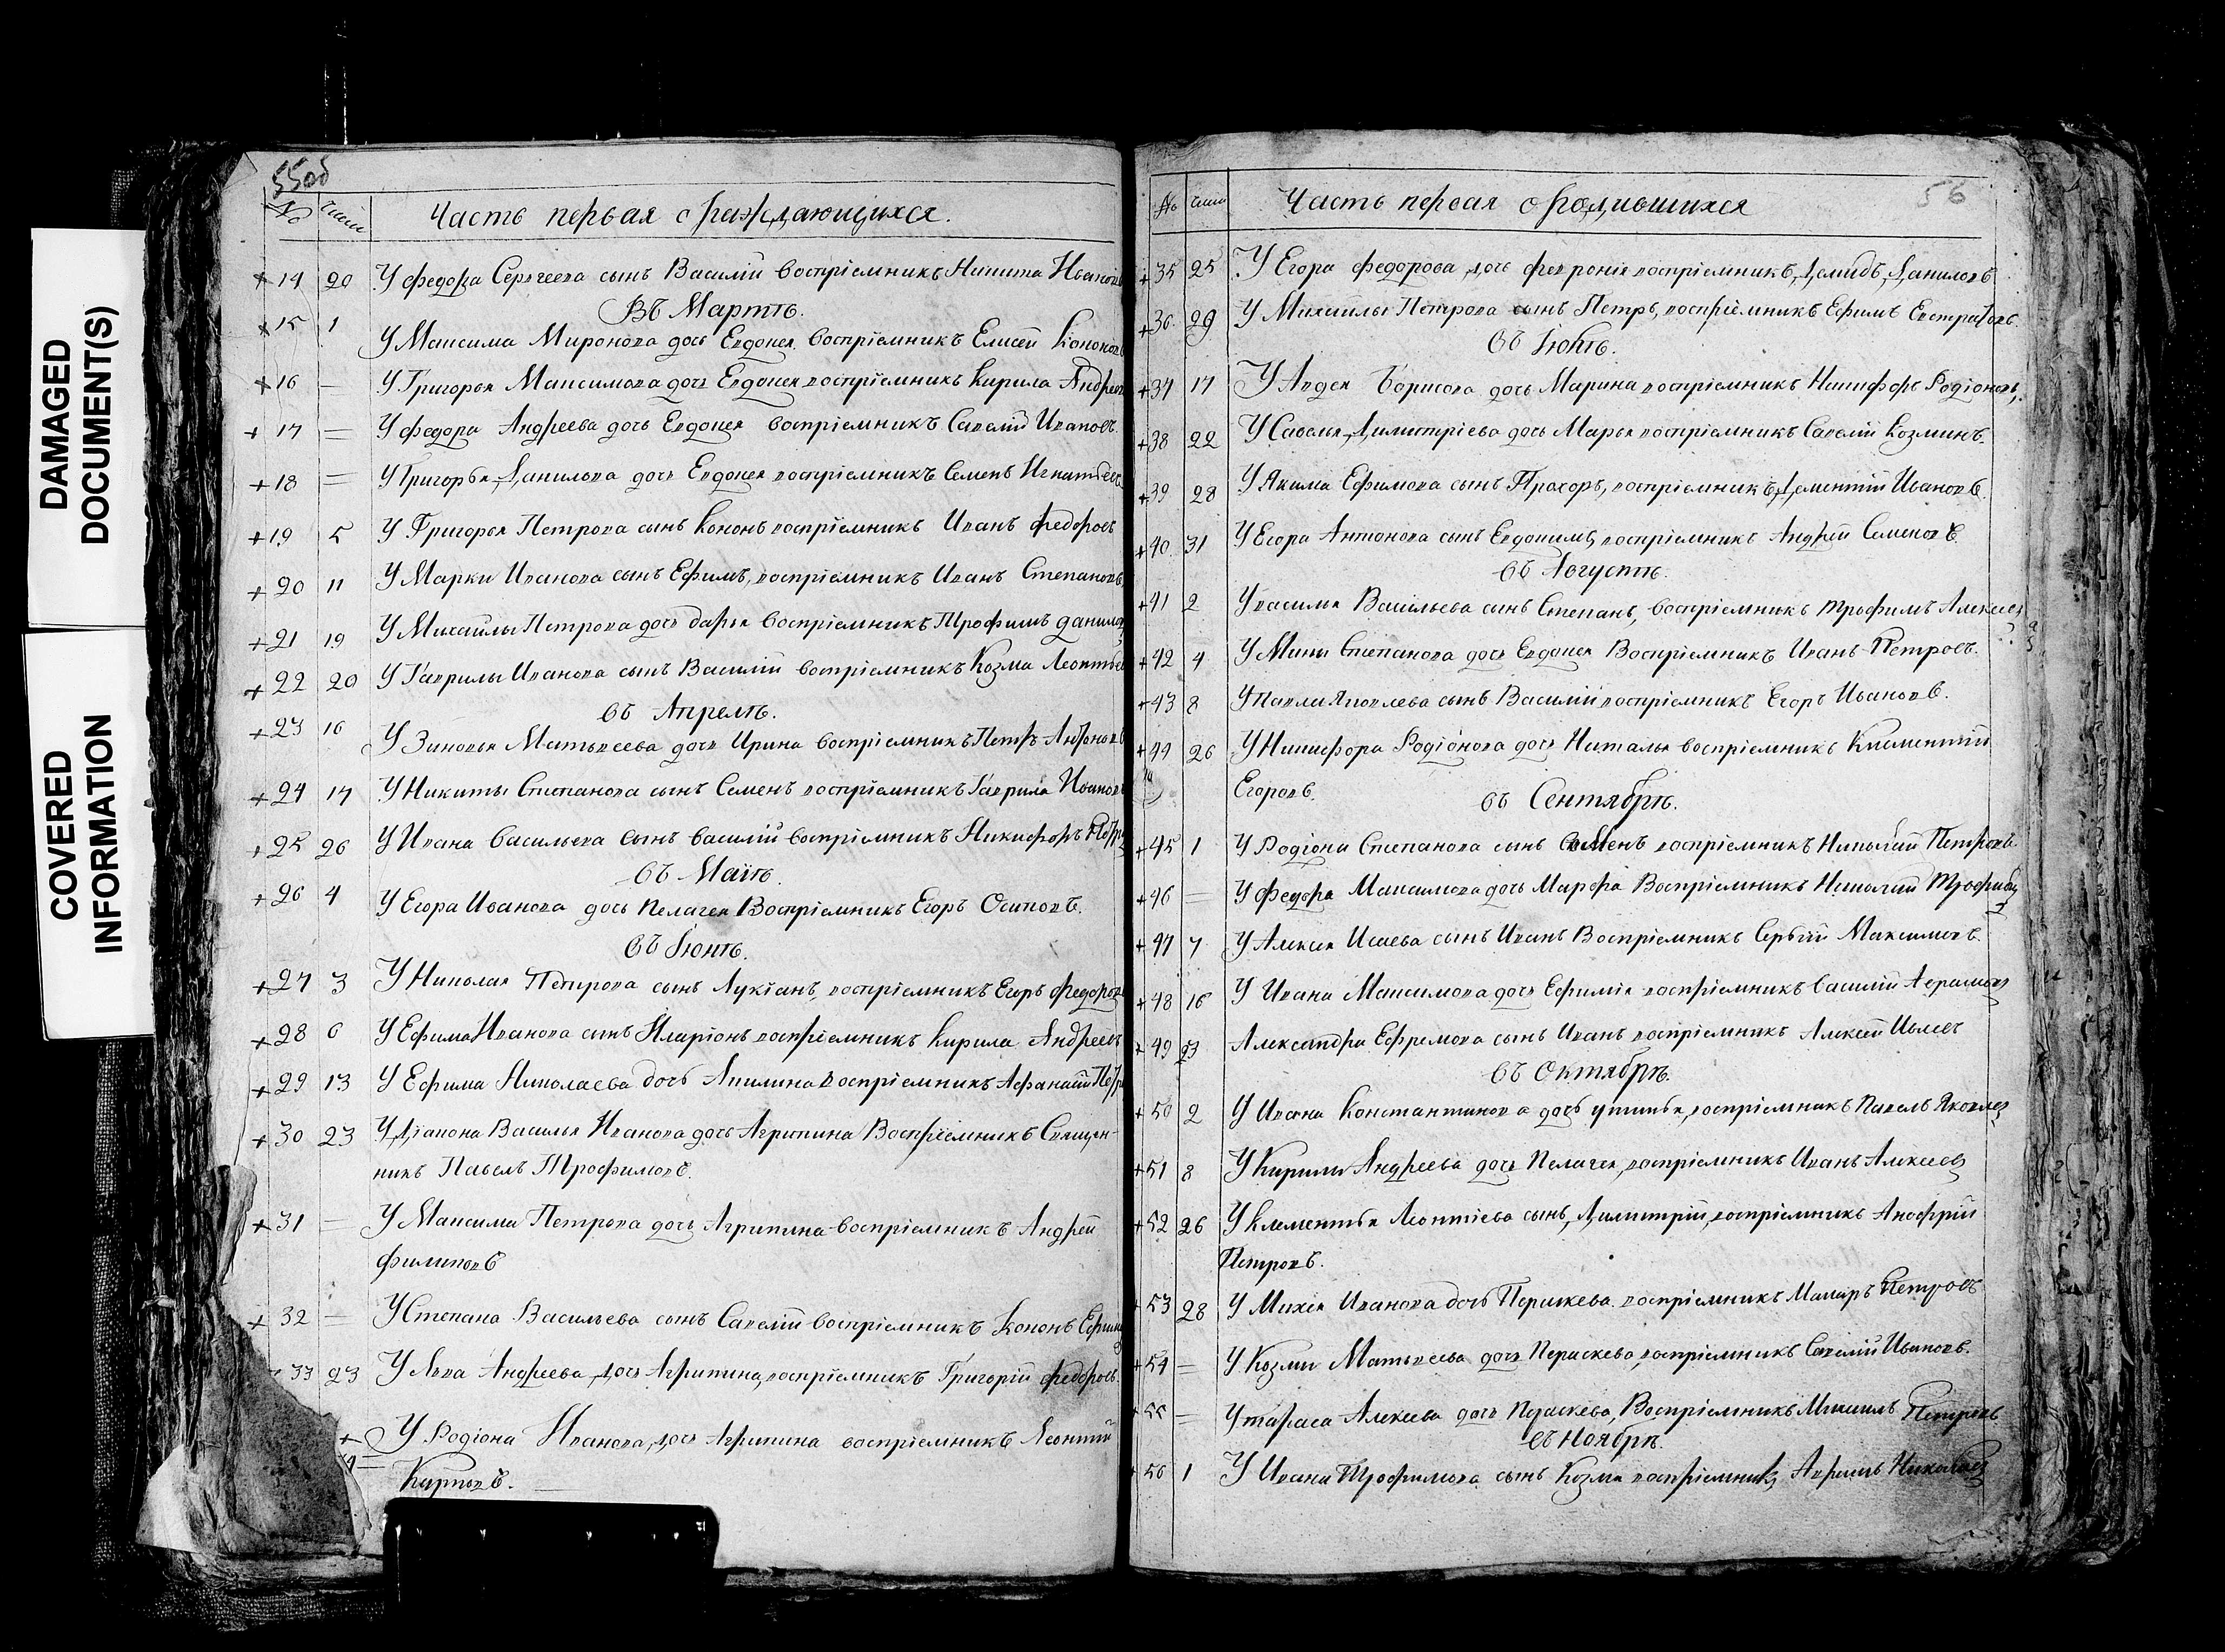 DAMAGED
DOCUMENT(S)
COVERED
INFORMATION
55об
№ числ Часть первая о раждающихся.
+14 20 У Федора Сергеева сынъ Василій воспріемникъ Никита Ивановъ
Въ Мартѣ.
+15 1 У Максима Миронова дочь Евдокея воспріемникъ Елисей Кононовъ
+16 — У Григорья Максимова дочь Евдокея воспріемникъ Кирила Андреевъ
+17 = У Федора Андреева дочь Евдокея воспріемникъ Савелій Ивановъ.
+18 = У Григорья Данилова дочь Евдокея воспріемникъ Семенъ Игнатьевъ
+19 5 У Григорья Петрова сынъ Кононъ воспріемникъ Иванъ Федоровъ
+20 11 У Марки Иванова сынъ Ефимъ, воспріемникъ Иванъ Степановъ
+21 19 У Михаилы Петрова дочь Дарья воспріемникъ Трофимъ Данилов
+22 20 У Гаврилы Иванова сынъ Василій воспріемникъ Козма Леонтьев
въ Апрелѣ.
+23 16 У Зиновья Матьвеева дочь Ирина воспріемникъ Петръ Антоновъ
+24 17 У Никиты Степанова сынъ Семенъ воспріемникъ Гаврила Ивановъ
+25 26 У Ивана Васильева сынъ Василій воспріемникъ Никифоръ
въ Маiѣ.
+26 4 У Егора Иванова дочь Пелагея Воспріемникъ Егоръ Осиповъ.
въ Iюнѣ.
+27 3 У Николая Петрова сынъ Лукіанъ, воспріемникъ Егоръ Федоров
+28 6 У Ефима Иванова сынъ Иларіонъ воспріемникъ Кирила Андреевъ
+29 13 У Ефима Николаева дочь Акилина воспріемникъ Афанасій Петр
+30 23 У Діакона Василья Иванова дочь Агрипина Воспріемникъ Священ-
никъ Павелъ Трофимовъ.
+31 = У Максима Петрова дочь Агрипина воспріемникъ Андрей
Филиповъ
+32 — У Степана Васильева сынъ Савелій воспріемникъ Кононъ Ефимов
33 23 У Льва Андреева дочь Агрипина, воспріемникъ Григорій Федоровъ.
У Родіона Иванова, дочь Агрипина воспріемникъ Леонтій
Карповъ.
56
№ числ Часть первая о родившихся
+35 25 У Егора Федорова дочь Февронія воспріемникъ, Демидъ, Даниловъ
+36 29 У Михаилы Петрова сынъ Петръ, воспріемникъ Ефимъ Евстратовъ.
въ Iюлѣ.
+37 17 У Авдея Борисова дочь Марина воспріемникъ Никифоръ Родіоновъ,
+38 22 У Савелья Димитріева дочь Марья воспріемникъ Савелій Козминъ.
+39 28 У Якима Ефимова сынъ Прохоръ, воспріемникъ Дементій Ивановъ.
+40 31 У Егора Антонова сынъ Евдокимъ, воспріемникъ Андрей Семеновъ.
въ Августѣ.
+41 2 У Василья Васильева сынъ Степанъ, воспріемникъ Трофимъ Алексеевъ
+42 4 У Мины Степанова дочь Евдокея Воспріемникъ Иванъ Петровъ.
+43 8 У Павла Яковлева сынъ Василій воспріемникъ Егоръ Ивановъ.
+44 26 У Никифора Родіонова дочь Наталья воспріемникъ Климентій
Егоровъ.
въ Сентябрѣ.
+45 1 У Родіона Степанова сынъ Семенъ воспріемникъ Николай Петровъ.
+46 = У Федора Максимова дочь Марфа Воспріемникъ Николай Трофимовъ
+47 7 У Алексея Исаева сынъ Иванъ Воспріемникъ Сергій Максимовъ.
+48 16 У Ивана Максимова дочь Ефимія воспріемникъ Василій Аврамовъ
+49 Александра Ефремова сынъ Иванъ воспріемникъ Алексей
въ Октябрѣ.
+50 2 У Ивана Константинова дочь воспріемникъ Павелъ Яковлевъ
+51 8 У Кирилы Андреева дочь Пелагея, воспріемникъ Иванъ Алексеевъ
+52 26 У Клементья Леонтіева сынъ, Димитрій, воспріемникъ Анофрій
Петровъ.
+53 28 У Михея Иванова дочь Парискева воспріемникъ Макаръ Петровъ
+54 = У Козмы Матьвеева дочь Параскева, воспріемникъ Савелій Ивановъ.
+55 = У Тараса Алексеева дочь Параскева, Воспріемникъ Михаилъ Петровъ
въ Ноябрѣ.
+56 1 У Ивана Трофимова сынъ Козма воспріемникъ Аврамъ Николаевъ